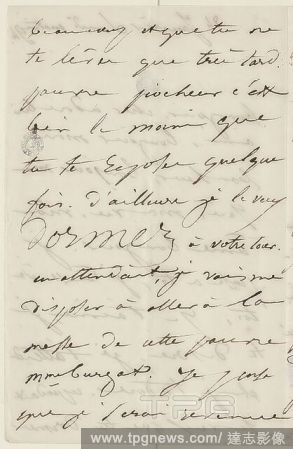 beaucoup et que tu ne
te lèves que très tard.
pauvre piocheur c'est
bien le moins que
tu te reposes quelque
fois. d'ailleurs je le veux
Dormez à votre tour.
en attendant, je vais me
disposer à aller à la
messe de cette pauvre
mme
que je serai revenue
TPG
www.tpgnews.com / 達志影像